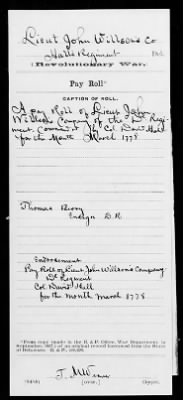 Lieut John Willsons Co
Halls Regiment Del.
(Revolutionary War.)
Pay Roll*
CAPTION OF ROLL.
A pay Roll of Lieut John
Willsons Company of the Del Regi-
ment Comman'd by Col David Hall
for the Month March 1778
Thomas
Ensign D. R.
Endorsement
Pay Roll of Lieut John Willson's Company
Dl Regiment
Col David Hall
for the month March 1778
*From copy made in the R. & P. Office, War Department, in
September, of an original record borrowed from the State
of Delaware. R. & P.
(over.)
Copyist.